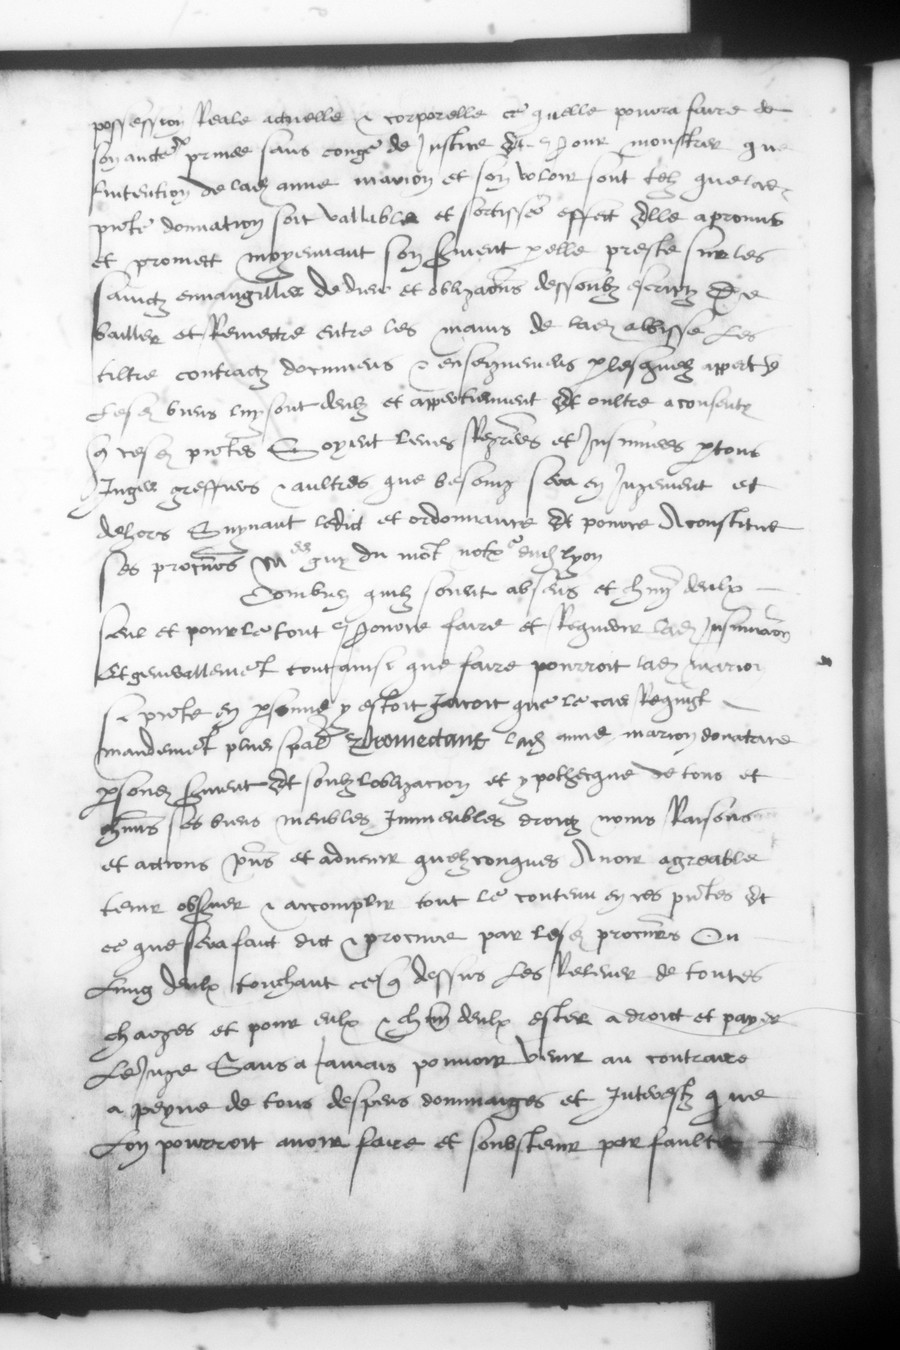 possession Reale actuelle & corporelle ce quelle pourra faire de
son aucte prinee sans conge de Justice Et pour monstrer que
Lintention de lad anne marion et son voloir sont telz que lad
pnte donnation soit vallable et sortisse effect Elle a promis
et promect moyennant son serment p elle preste sur les
sainctz euuangilles de dieu et obligaons dessoubz escriptz De
bailler et Remectre entre les mains de lad Les
tiltre contractz documens & enseignemens p lesquelz appert q
Lesd biens luy sont deuhz et appertiennent Et oultre a consenty
q cesd pntes Soyent leues Regrees et Insinuees p tous
Juges greffiers & aultres que besoing sera en Jugement et
dehors Suyuant ledict et ordonnance Et pource A constitue
ses procurs Mes guy du mot
Combien quilz soient absens et chun deulx
seul et pour le tout Pource faire et Requerir lad Insinuaon
Et generallement tout ainsi que faire pourroit lad marion
si pnte en psonne y estoit Jacoit que le cas Requist
mandement plus spal Promectant lad anne marion donatrice
p sond serment Et soubz lobligacion et ypothecque de tous et
chuns ses biens meubles Immeubles droitz noms Raisons
et actions pns et aduenir quelzconques Auoir agreable
tenir obseruer & accomplir tout le contenu en ces pntes Et
ce que sera faict dict & procure par lesd procurrs Ou
Lung deulx touchant ce q dessus Les Releuer de toutes
charges et pour eulx & chun deulx ester a droict et payer
Le Juge Sans a Jamais pouuoir venir au contraire
a peyne de tous despens dommaiges et Interestz que
Lon pourroit auoir faire et soubstenir par faulte